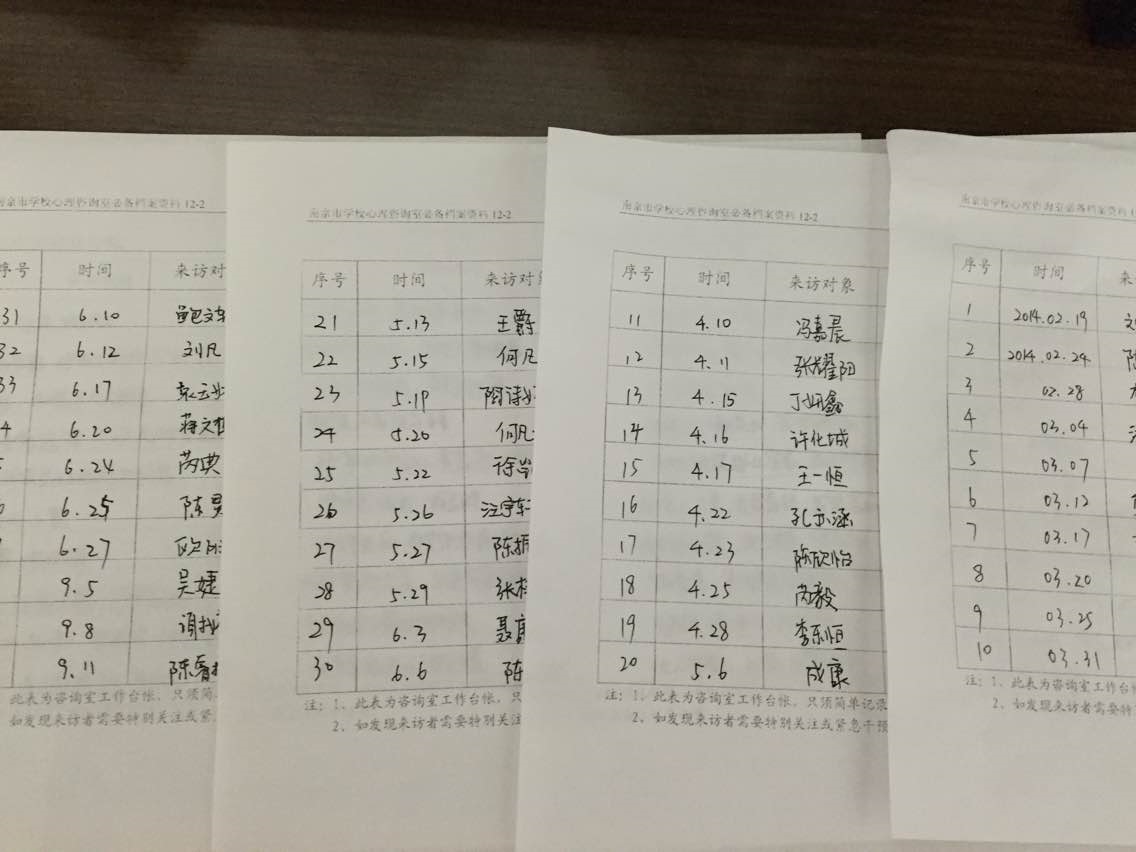 南京市学校心理咨询室必备档案资料 12-2
序号 时间 来访对
31 6.10 鲍文
32 6.12 刘凡
33 6.17 袁云
4 6.20 蒋文
6.24 芮典
6.25 陈
6.27 欧阳
9.5 吴婕
9.8
9.11 陈睿
此表为咨询室工作台帐，只须简
如发现来访者需要特别关注或紧
南京市学校心理咨询室必备档案资料 12-2
序号 时间 来访对
21 5.13 王爵
22 5.15 何凡
23 5.19 陶诗
24 5.20 何凡
25 5.22 徐
26 5.26 汪宇轩
27 5.27 陈振
28 5.29 张
29 6.3 聂
30 6.6 陈
注：1、此表为咨询室工作台帐，只
2、如发现来访者需要特别关注
南京市学校心理咨询室必备档案资料 12-2
序号 时间 来访对象
11 4.10 冯嘉晨
12 4.11 张耀阳
13 4.15 丁妍鑫
14 4.16 许化城
15 4.17 王一恒
16 4.22 孔亦涵
17 4.23 陈欣怡
18 4.25 芮毅
19 4.28 李东恒
20 5.6 成康
注：1、此表为咨询室工作台帐，只须简单记录
2、如发现来访者需要特别关注或紧急干预
南京市学校心理咨询室必备档案资料 1
序号 时间 来
1 2014.02.19
2 2014.02.24
3 02.28
4 03.04
5 03.07
6 03.12
7 03.17
8 03.20
9 03.25
10 03.31
注：1、此表为咨询室工作台
2、如发现来访者需要特